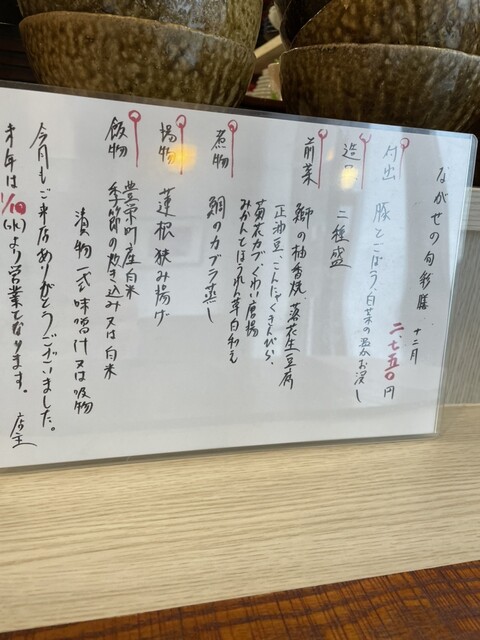 ながせの旬彩膳 十二月
二、七五〇円
付出 豚とごぼう、白菜の煮お浸し
造り 二種盛
前菜 鰤の柚香焼、落花生豆腐
正油豆、こんにゃくきんぴら、
菊花カブ、くわい唐揚
みかんとほうれん草白和え
煮物 鯛のカブラ蒸し
揚物 蓮根狭み揚げ
飯物 豊栄町産白米
季節の炊き込み又は白米
漬物一式 味噌汁又は吸物
今月もご来店ありがとうございました。
来年は1/10(水)より営業となります。 店主